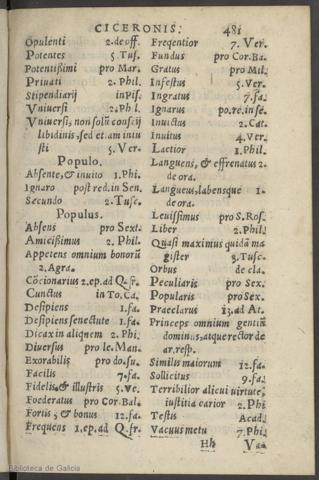 CICERONIS. 481
Opulenti 2.de off.
Potentes 5. Tus.
Potentißimi pro Mar.
Priuati 2. Phil.
Stipendiarij in Pis.
Vniuersi 2. Phil.
Vniuersi, non solũ conscij
libidinis, sed et am iniu
sti 5. Ver.
Populo.
Absente, & inuito 1. Phi.
Ignaro post red. in Sen.
Secundo 2. Tusc.
Populus.
Absens pro Sext.
Amicißimus 2. Phil.
Appetens omnium bonorũ
2. Agra.
Cõcionarius 2.ep.ad Q.fr.
Cunctus in To. Ca.
Desipiens 1. fa.
Desipiens senectute 1. fa.
Dicax in aliqnem 2. Ph.
Diuersus pro le. Man.
Exorabilis pro do. su.
Facilis 7. fa.
Fidelis, & illustris 5. Ve.
Foederatus pro Cor. Bal.
Fortis, & bonus 12. fa.
Frequens 1.ep.ad Q.fr.
Freqentior 7. Ver.
Fundus pro Cor. Ba.
Gratus pro Mil.
Infestus 5. Ver.
Ingratus 7. fa.
Ignarus po.re.in se.
Inuictus 2. Cat.
Inuitus 4. Ver.
Laetior 1. Phil.
Languens, & effrenatus 2.
de ora.
Langueus, labensque 1.
de ora.
Leuissimus pro S. Ros.
Liber 2. Phil.
Quasi maximus quidã ma
gister 3. Tusc.
Orbus de cla.
Peculiaris pro Sex.
Popularis pro Sex.
Praeclarus 13. ad At.
Princeps omnium gentiũ
dominus, atque rector de
ar. resp.
Similis maiorum 12. fa.
Sollicitus 9. fa.
Terribilior alicui uirtute,
iustitia carior 2. Phi
Testis Acad.
Vacuus metu 7. Phi.
Hh Va
Biblioteca de Galicia